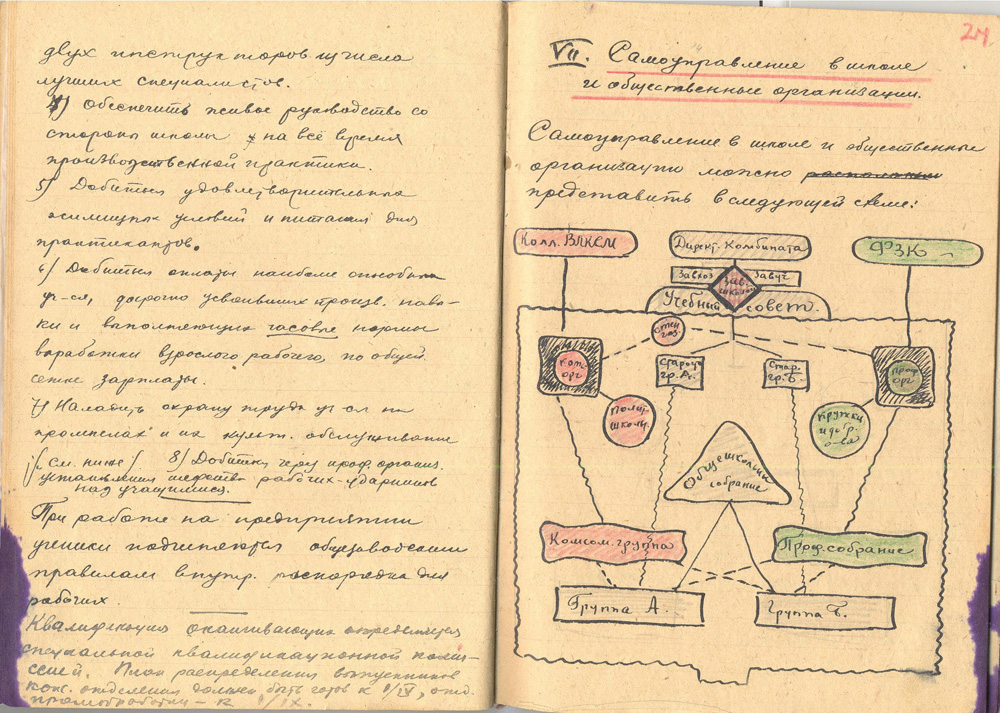 двух инструкторов из числа
лучших специалистов.
4) Обеспечить живое руководство со
стороны школы на всё время
производственной практики.
5) Добиться удовлетворительных
жилищных условий и питания для
практикантов.
6) Добиться оплаты наиболее способных
уч-ся, досрочно усвоивших произв. навы-
ки и выполняющих часовые нормы
выработки взрослого рабочего, по общей
сетке зарплаты.
7) Наладить охрану труда уч-ся на
и их культ. обслуживание
/см. ниже/. 8) Добиться через проф. организ.
установления шефства рабочих-ударников
над учащимися.
При работе на предприятии
ученики подчиняются общезаводским
правилам внутр. распорядка для
рабочих.
Квалификация оканчивающих определяется
специальной квалификационной комис-
сией. План распределения выпускников
кож. отделения должен быть готов к 1/IV, отд.
к 1/IX.
24
VII. Самоуправление в школе
и общественные организации.
Самоуправление в школе и общественные
организации можно
представить в следующей схеме:
Колл. ВЛКСМ
Директ. Комбината
ФЗК
Завхоз
Зав. школы
Завуч
Учебный совет.
Стен газ.
Ком. орг
Старост. гр. А.
Стар. гр. Б.
Проф. орг
Полит. школы
Кружки и добр. о-ва
Общешкольн.
собрание
Комсом. группа
Проф. собрание
Группа А.
Группа Б.